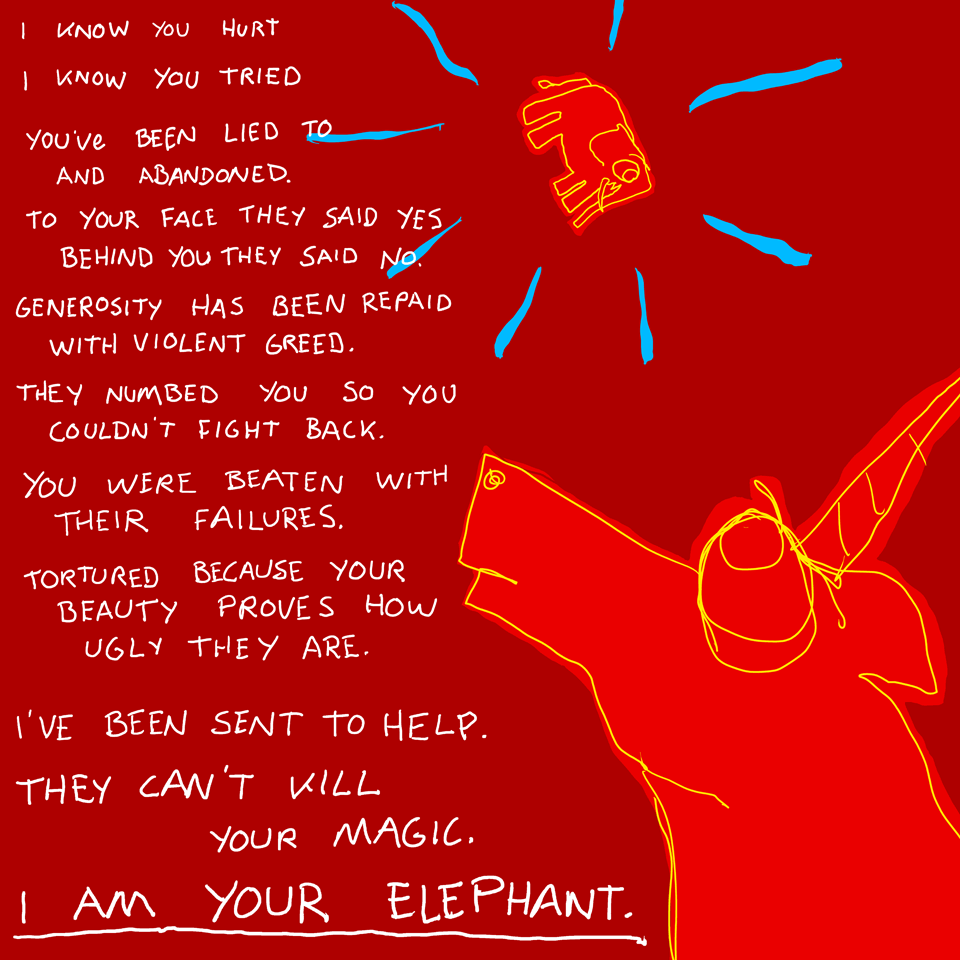 I KNOW YOU HURT
I KNOW YOU TRIED
YOU'VE BEEN LIED TO
AND ABANDONED.
TO YOUR FACE THEY SAID YES
BEHIND YOU THEY SAID NO.
GENEROSITY HAS BEEN REPAID
WITH VIOLENT GREED.
THEY NUMBED YOU SO YOU
COULDN'T FIGHT BACK.
YOU WERE BEATEN WITH
THEIR FAILURES.
TORTURED BECAUSE YOUR
BEAUTY PROVES HOW
UGLY THEY ARE.
I'VE BEEN SENT TO HELP.
THEY CAN'T KILL
YOUR MAGIC.
I AM YOUR ELEPHANT.